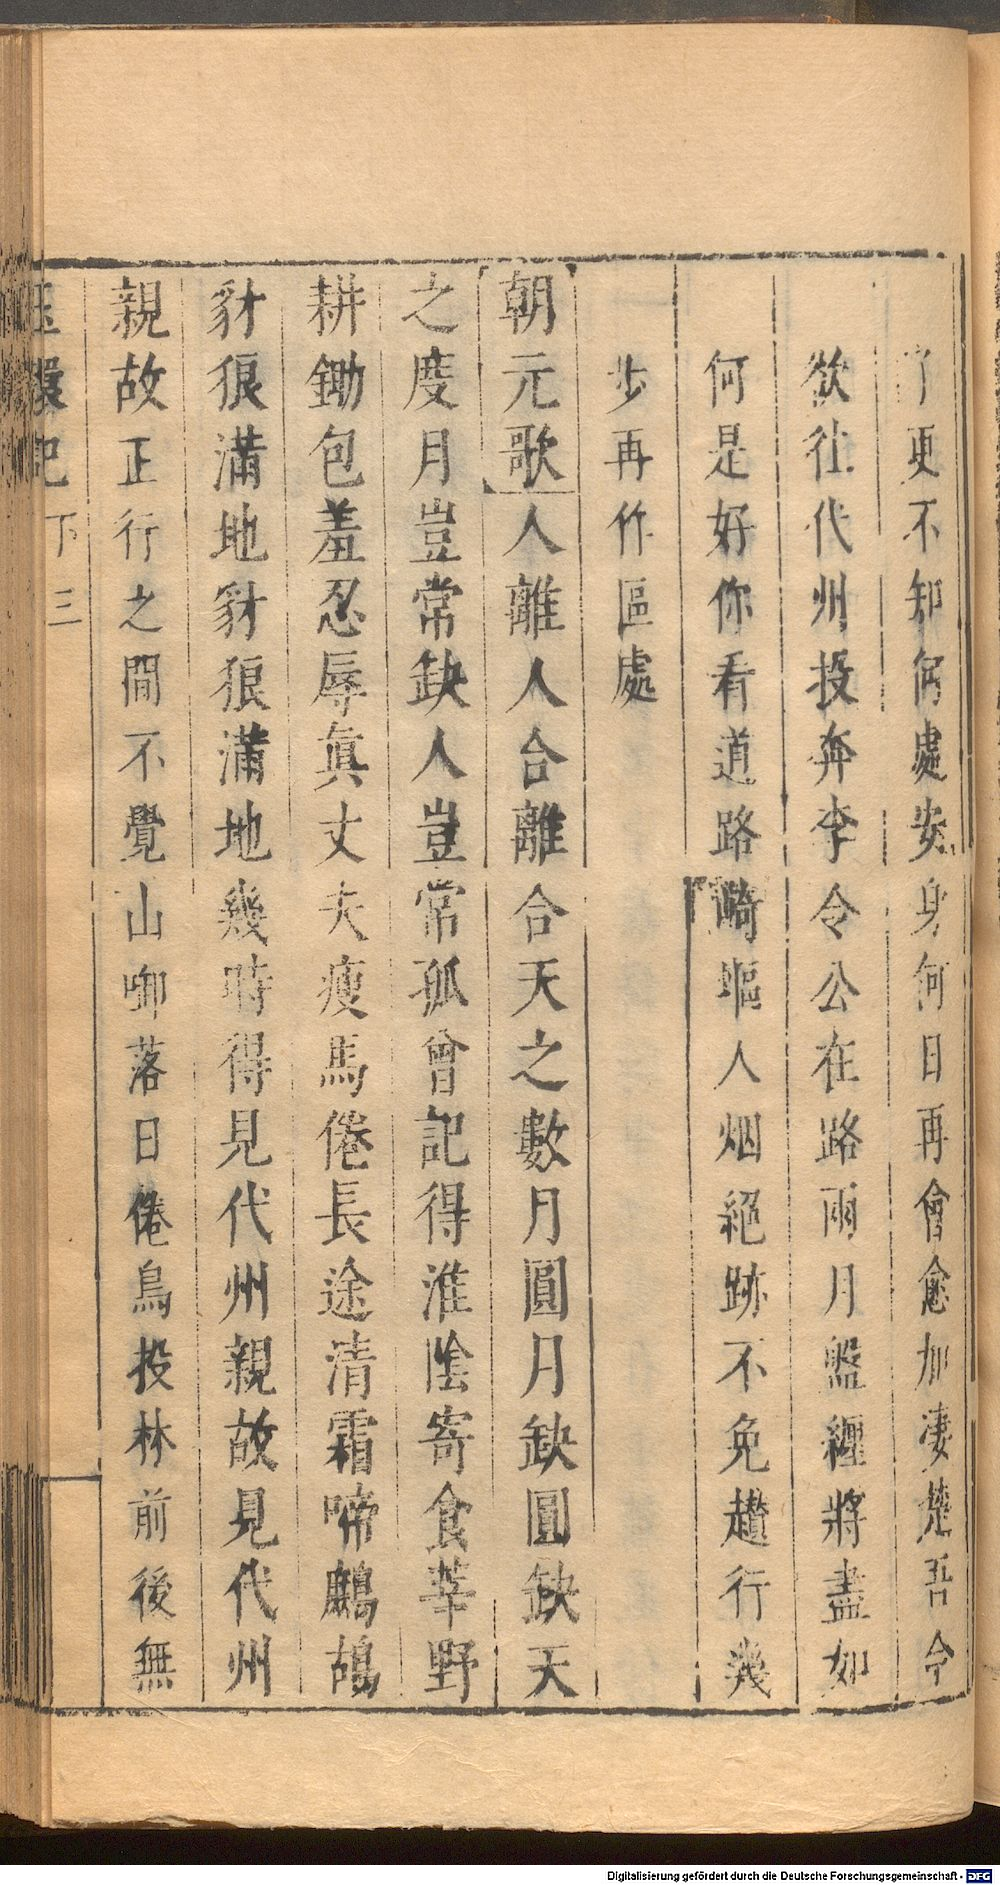 了更不知何處安身何日再會愈加凄楚吾今
欲往代州投奔李令公在路兩月盤纏將盡如
何是好你看道路崎嶇人烟絕跡不免趲行幾
步再作區處
朝元歌人離人合離合天之數月圓月缺圓缺天
之度月豈常缺人豈常孤曾記得淮陰寄食莘野
耕鋤包羞忍辱眞丈夫瘦馬倦長途清霜啼鷓鴣
豺狼滿地豺狼滿地幾時得見代州親故見代州
親故正行之間不覺山啣落日倦鳥投林前後無
玉環記 下 三
Digitalisierung gefördert durch die Deutsche Forschungsgemeinschaft - DFG